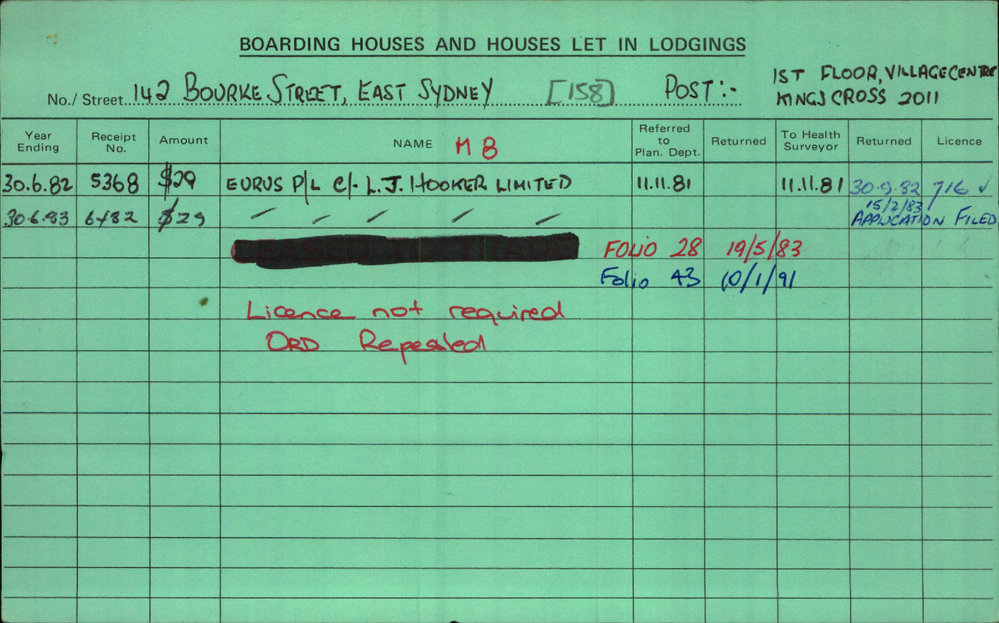 BOARDING HOUSES AND HOUSES LET IN LODGINGS
No./ Street 142 BOURKE STREET, EAST SYDNEY [158] POST:- 1ST FLOOR, VILLAGE CENTRE
KINGS CROSS 2011
Year Ending Receipt No. Amount NAME M B Referred to Plan. Dept. Returned To Health Surveyor Returned Licence
30.6.82 5368 $29 EURUS P/L C/- L.J. HOOKER LIMITED 11.11.81 11.11.81 30.9.82 716 ✓
30.6.83 6482 $29 " " " " " 15/2/83
APPLICATION FILED
FOLIO 28 19/5/83
Folio 43 10/1/91
Licence not required
ORD Repealed